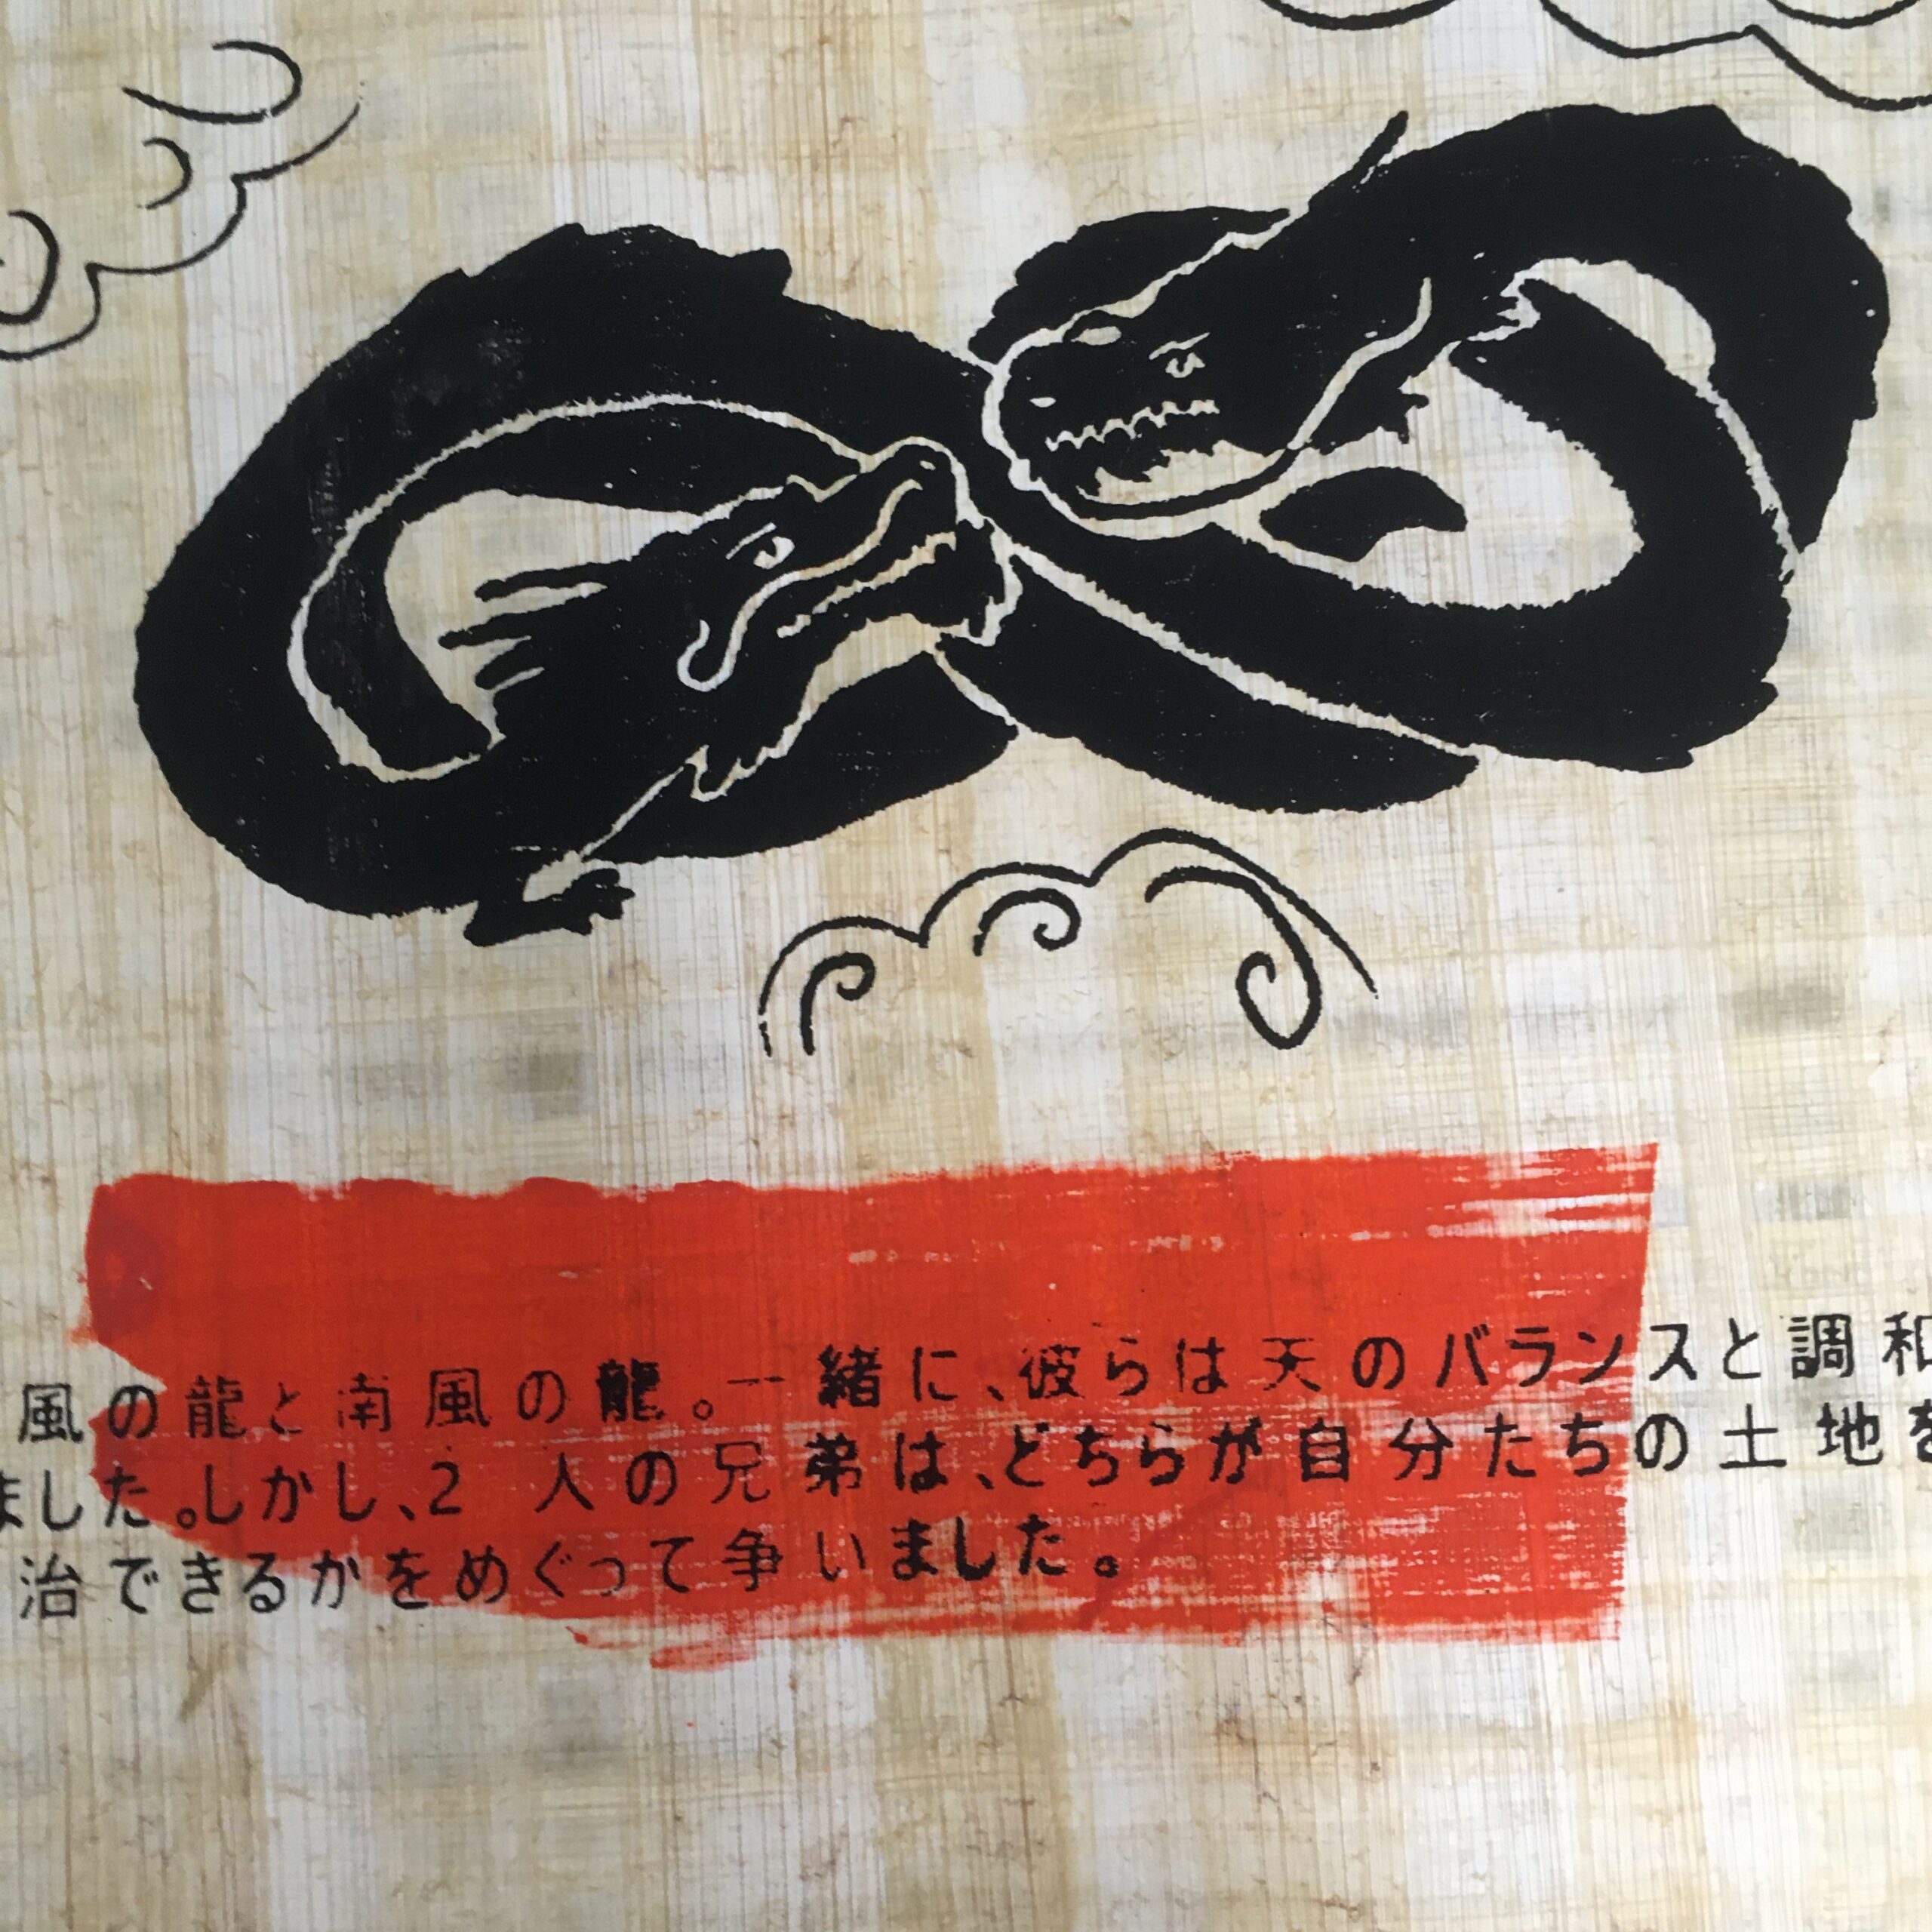 風の龍と南風の龍。一緒に、彼らは天のバランスと調和
ました。しかし、2人の兄弟は、どちらが自分たちの土地を
治できるかをめぐって争いました。